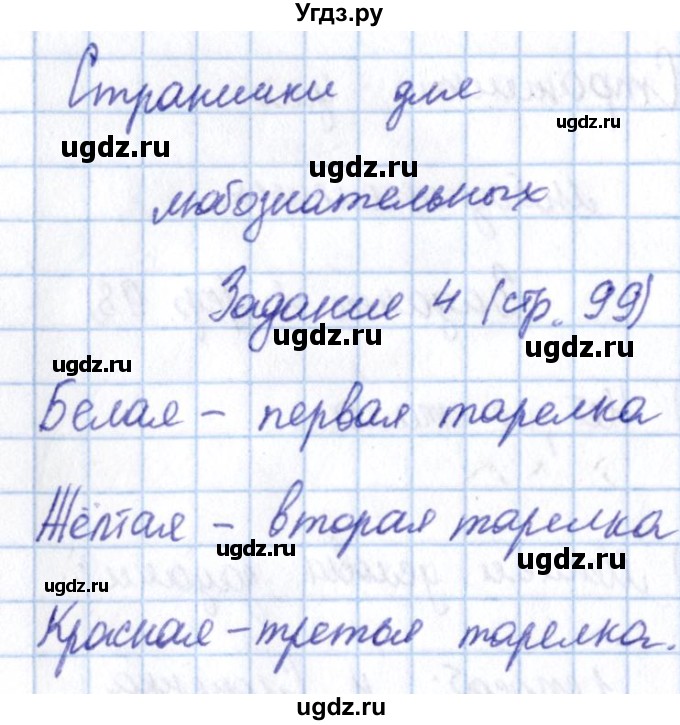 Угдз.ру
Странички для
ugdz.ru
ugdz.ru
ugdz.ru
любознательных
Задание 4 (стр. 99)
ugdz.ru
ugdz.ru
ugdz.ru
Белая – первая тарелка
ugdz.ru
ugdz.ru
Жёлтая – вторая тарелка
ugdz.ru
ugdz.ru
ugdz.ru
Красная – третья тарелка.
ugdz.ru
ugdz.ru
ugdz.ru